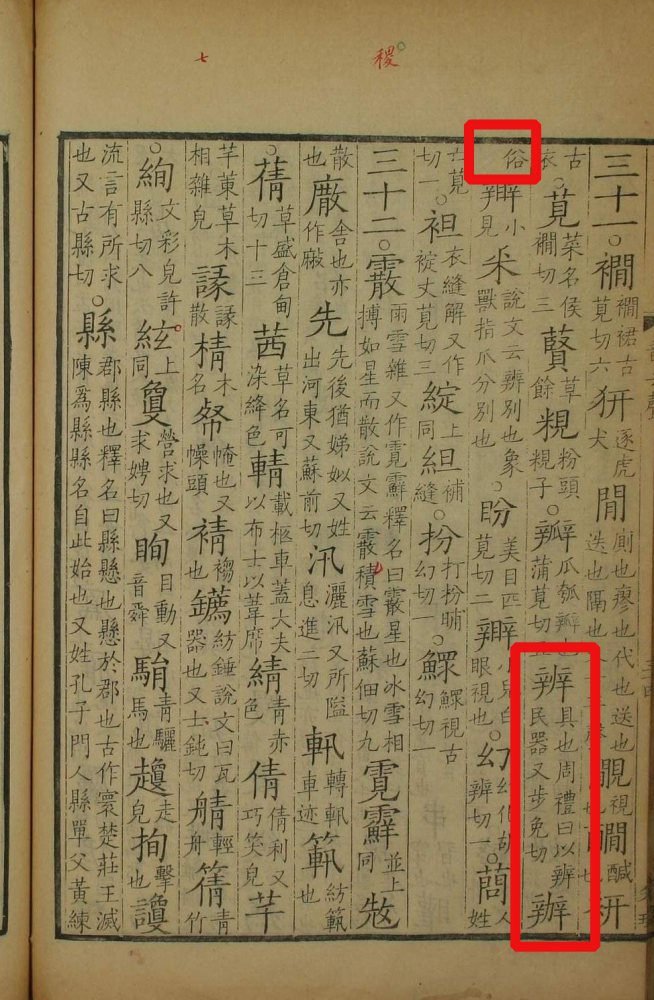 七
稷
三十一。襇襇裙古莧切六逐虎犬閒廁也瘳也代也送也迭也隔也視醎
古衣。莧菜名侯襇切三草餘粯粉頭粯子。瓣瓜瓠瓣也蒲莧切五辨具也周禮曰以辨民器又步免切辦
俗辧小見釆說文云辨別也象獸指爪分別也。盼美目匹莧切二小兒白眼視也幻幻化胡辨切一。蕳人姓
古莧切一。袒衣縫解又作綻丈莧切三綻上同組補縫。扮打扮晡幻切一。鰥鰥視古幻切一
三十二。霰雨雪雜又作霓䨷釋名曰霰星也冰雪相搏如星而散說文云霰積雪也蘇佃切九霓䨷並上同㪚
散也舍也亦作先先後猶娣姒又姓出河東又蘇前切汛灑汛又所隘息進二切軐轉軐車迹紡範也
。蒨草盛倉甸切十三茜草名可染絳色輤載柩車蓋大夫以布士以葦席綪青赤色倩倩利又巧笑皃芊
芊萰草木相雜皃散棈木名㡎㡊也又幧頭䙺也鐫紡錘說文曰瓦器也又士鈍切輕舟青竹
。絢文彩皃許縣切八絃上同夐營求也又求娉切眴目動又音舜駽青驪馬也走皃擊也
流言有所求也又古縣切。縣郡縣也釋名曰縣懸也懸於郡也古作寰楚莊王滅陳爲縣縣名自此始也又姓孔子門人縣單父黃練